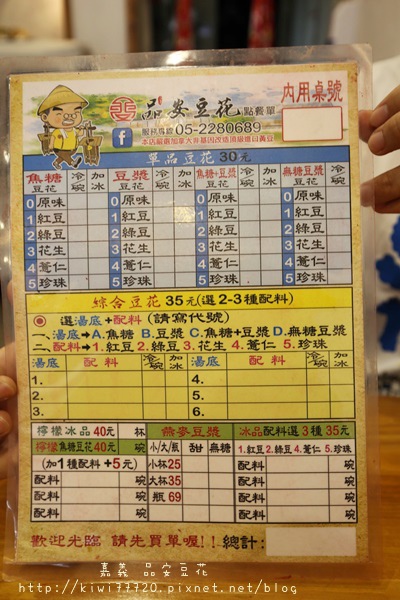 品安豆花 點餐單
內用桌號
服務專線 05-2280689
本店嚴選加拿大非基因改造頂級進口黃豆
單品豆花 30元
焦糖豆花 冷碗 加冰 豆漿豆花 冷碗 加冰 焦糖+豆漿豆花 冷碗 加冰 無糖豆漿豆花 冷碗 加冰
0 原味 0 原味 0 原味 0 原味
1 紅豆 1 紅豆 1 紅豆 1 紅豆
2 綠豆 2 綠豆 2 綠豆 2 綠豆
3 花生 3 花生 3 花生 3 花生
4 薏仁 4 薏仁 4 薏仁 4 薏仁
5 珍珠 5 珍珠 5 珍珠 5 珍珠
綜合豆花 35元(選2-3種配料)
選湯底+配料(請寫代號)
一、湯底→A.焦糖 B.豆漿 C.焦糖+豆漿 D.無糖豆漿
二、配料→1.紅豆 2.綠豆 3.花生 4.薏仁 5.珍珠
湯底 配料 冷碗 加冰 湯底 配料 冷碗 加冰
1. 4.
2. 5.
3. 6.
檸檬冰品40元 杯 燕麥豆漿 冰品配料選3種35元
檸檬焦糖豆花40元 碗 小/大/瓶 甜 無糖 1.紅豆 2.綠豆 4.薏仁 5.珍珠
(加1種配料+5元) 小杯25 配料 碗
配料 碗 大杯35 配料 碗
配料 碗 瓶 69 配料 碗
配料 碗 配料 碗
歡迎光臨 請先買單喔!! 總計:
嘉義 品安豆花
http://kiwi77720.pixnet.net/blog